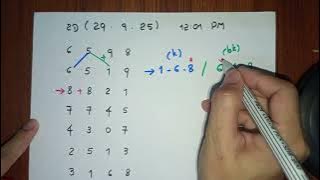 2D (29.9.25) 12:01 PM
6 5 9 8
(k) (bk)
6 5 1 9 → 1-6-8 / 6
→ 8 + 8 2 1
7 7 4 5
4 3 0 7
2 5 1 3
3 1 6 8